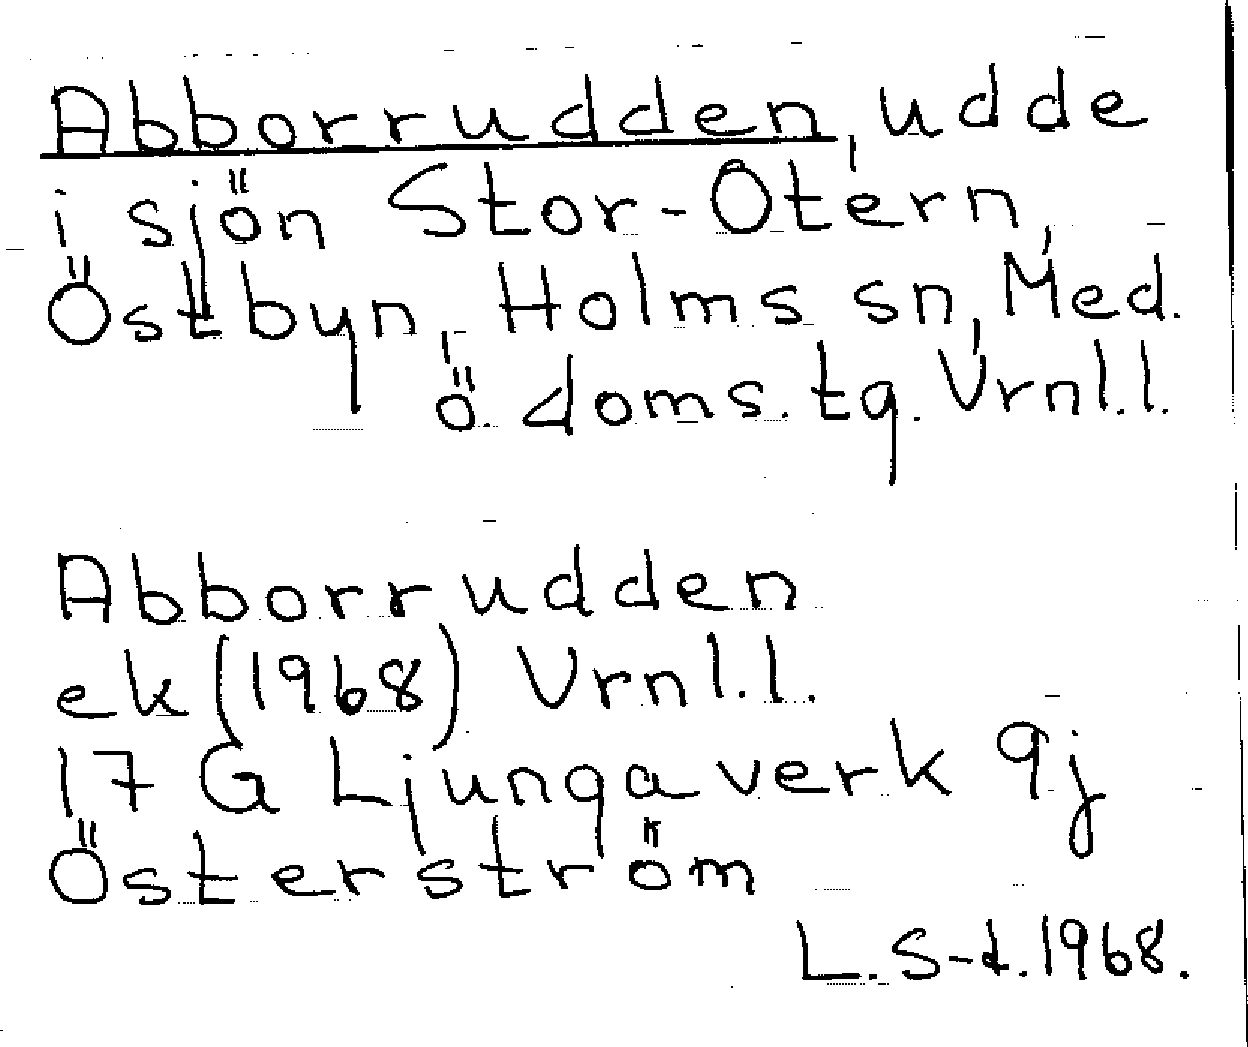 Abborrudden, udde
i sjön Stor-Otern,
Östbyn, Holms sn, Med.
ö. doms. tg. Vrnl.l.
Abborrudden
ek (1968) Vrnl.l.
17 G Ljungaverk 9j
Österström
L. S-t. 1968.